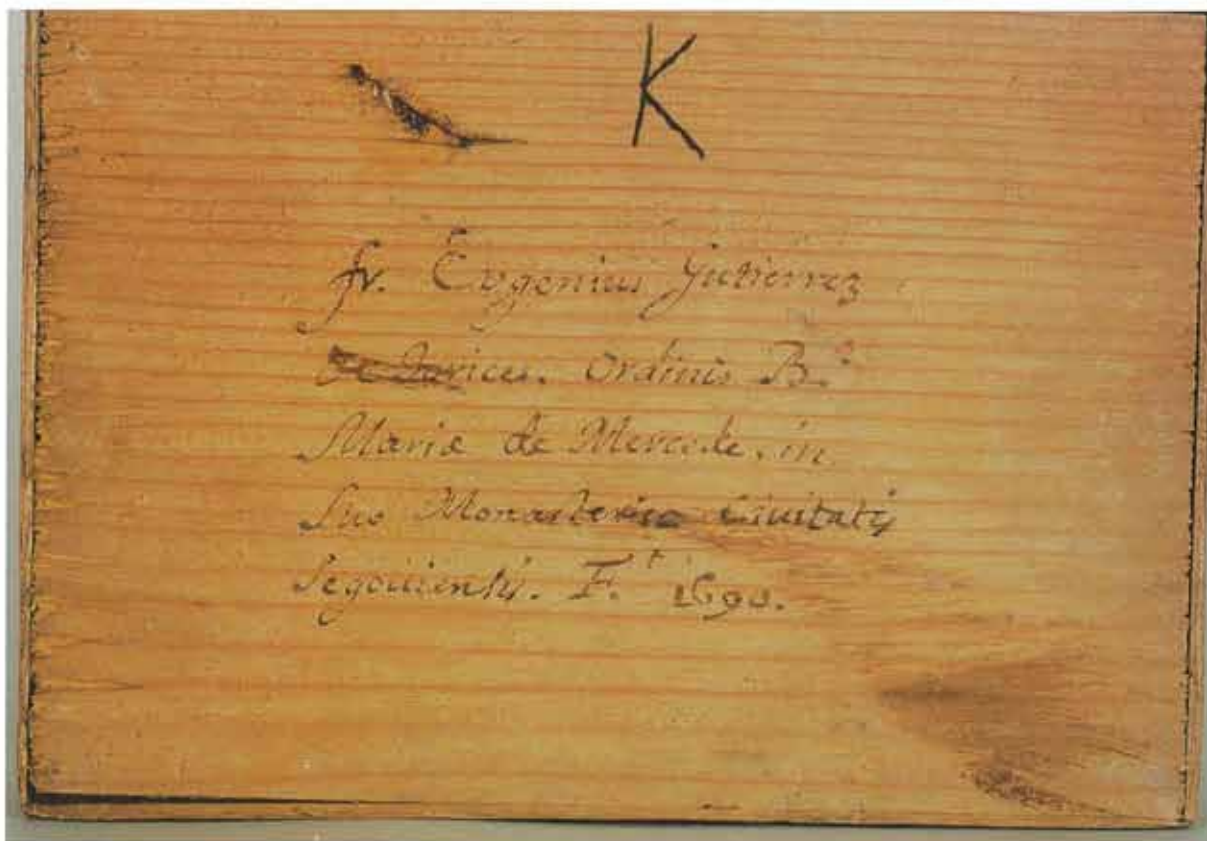 K
fr. Eugenius Gutierrez
de Torices. Ordinis B.ᵉ
Mariæ de Mercede. in
Suo Monasterio Ciuitatis
Segouiensis. F.ᵗ 1690.